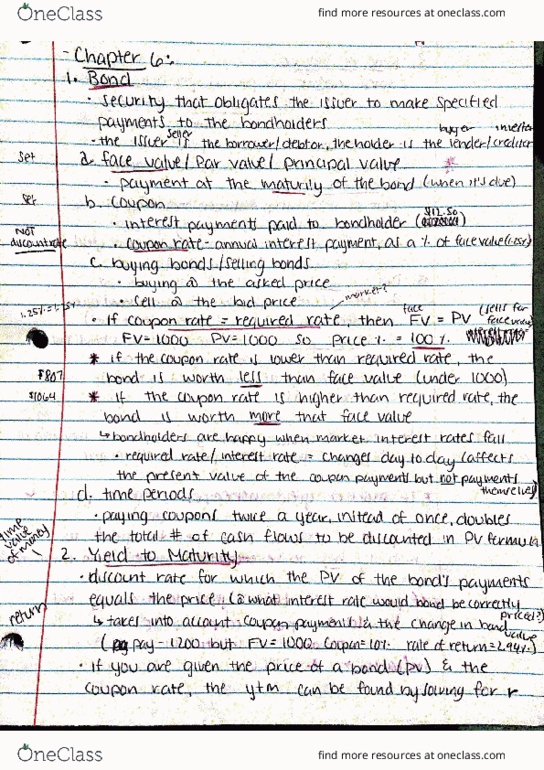 OneClass
find more resources at oneclass.com
- Chapter 6:
1. Bond
• security that obligates the issuer to make specified
payments to the bondholders
seller buyer investor
• the issuer is the borrower/debtor, the holder is the lender/creditor
set a. face value/ Par value/ principal value
• payment at the maturity of the bond (when it's due)
set b. coupon
$12.50
• interest payments paid to bondholder
NOT discount rate
• coupon rate - annual interest payment, as a % of face value (1.25%)
c. buying bonds/selling bonds
• buying @ the asked price
• sell @ the bid price
market?
1.25% = 1.25%
• if coupon rate = required rate, then face FV = PV (sells for face value)
FV = 1000 PV = 1000 so price % = 100%
* if the coupon rate is lower than required rate, the
$807 bond is worth less than face value (under 1000)
$1064 * if the coupon rate is higher than required rate, the
bond is worth more that face value
↳ bondholders are happy when market interest rates fall
• required rate/interest rate = changes day to day (affects
the present value of the coupon payments but not payments
themselves)
d. time periods
• paying coupons twice a year, instead of once, doubles
the total # of cash flows to be discounted in PV formula
time value of money
2. Yield to Maturity
• discount rate for which the PV of the bond's payments
equals the price (@ what interest rate would bond be correctly
priced?)
return ↳ takes into account coupon payments & the change in bond
value
( pay - 1200 but FV = 1000 coupon = 10% rate of return = 2.94%)
• if you are given the price of a bond (PV) & the
coupon rate, the ytm can be found by solving for r
OneClass
find more resources at oneclass.com